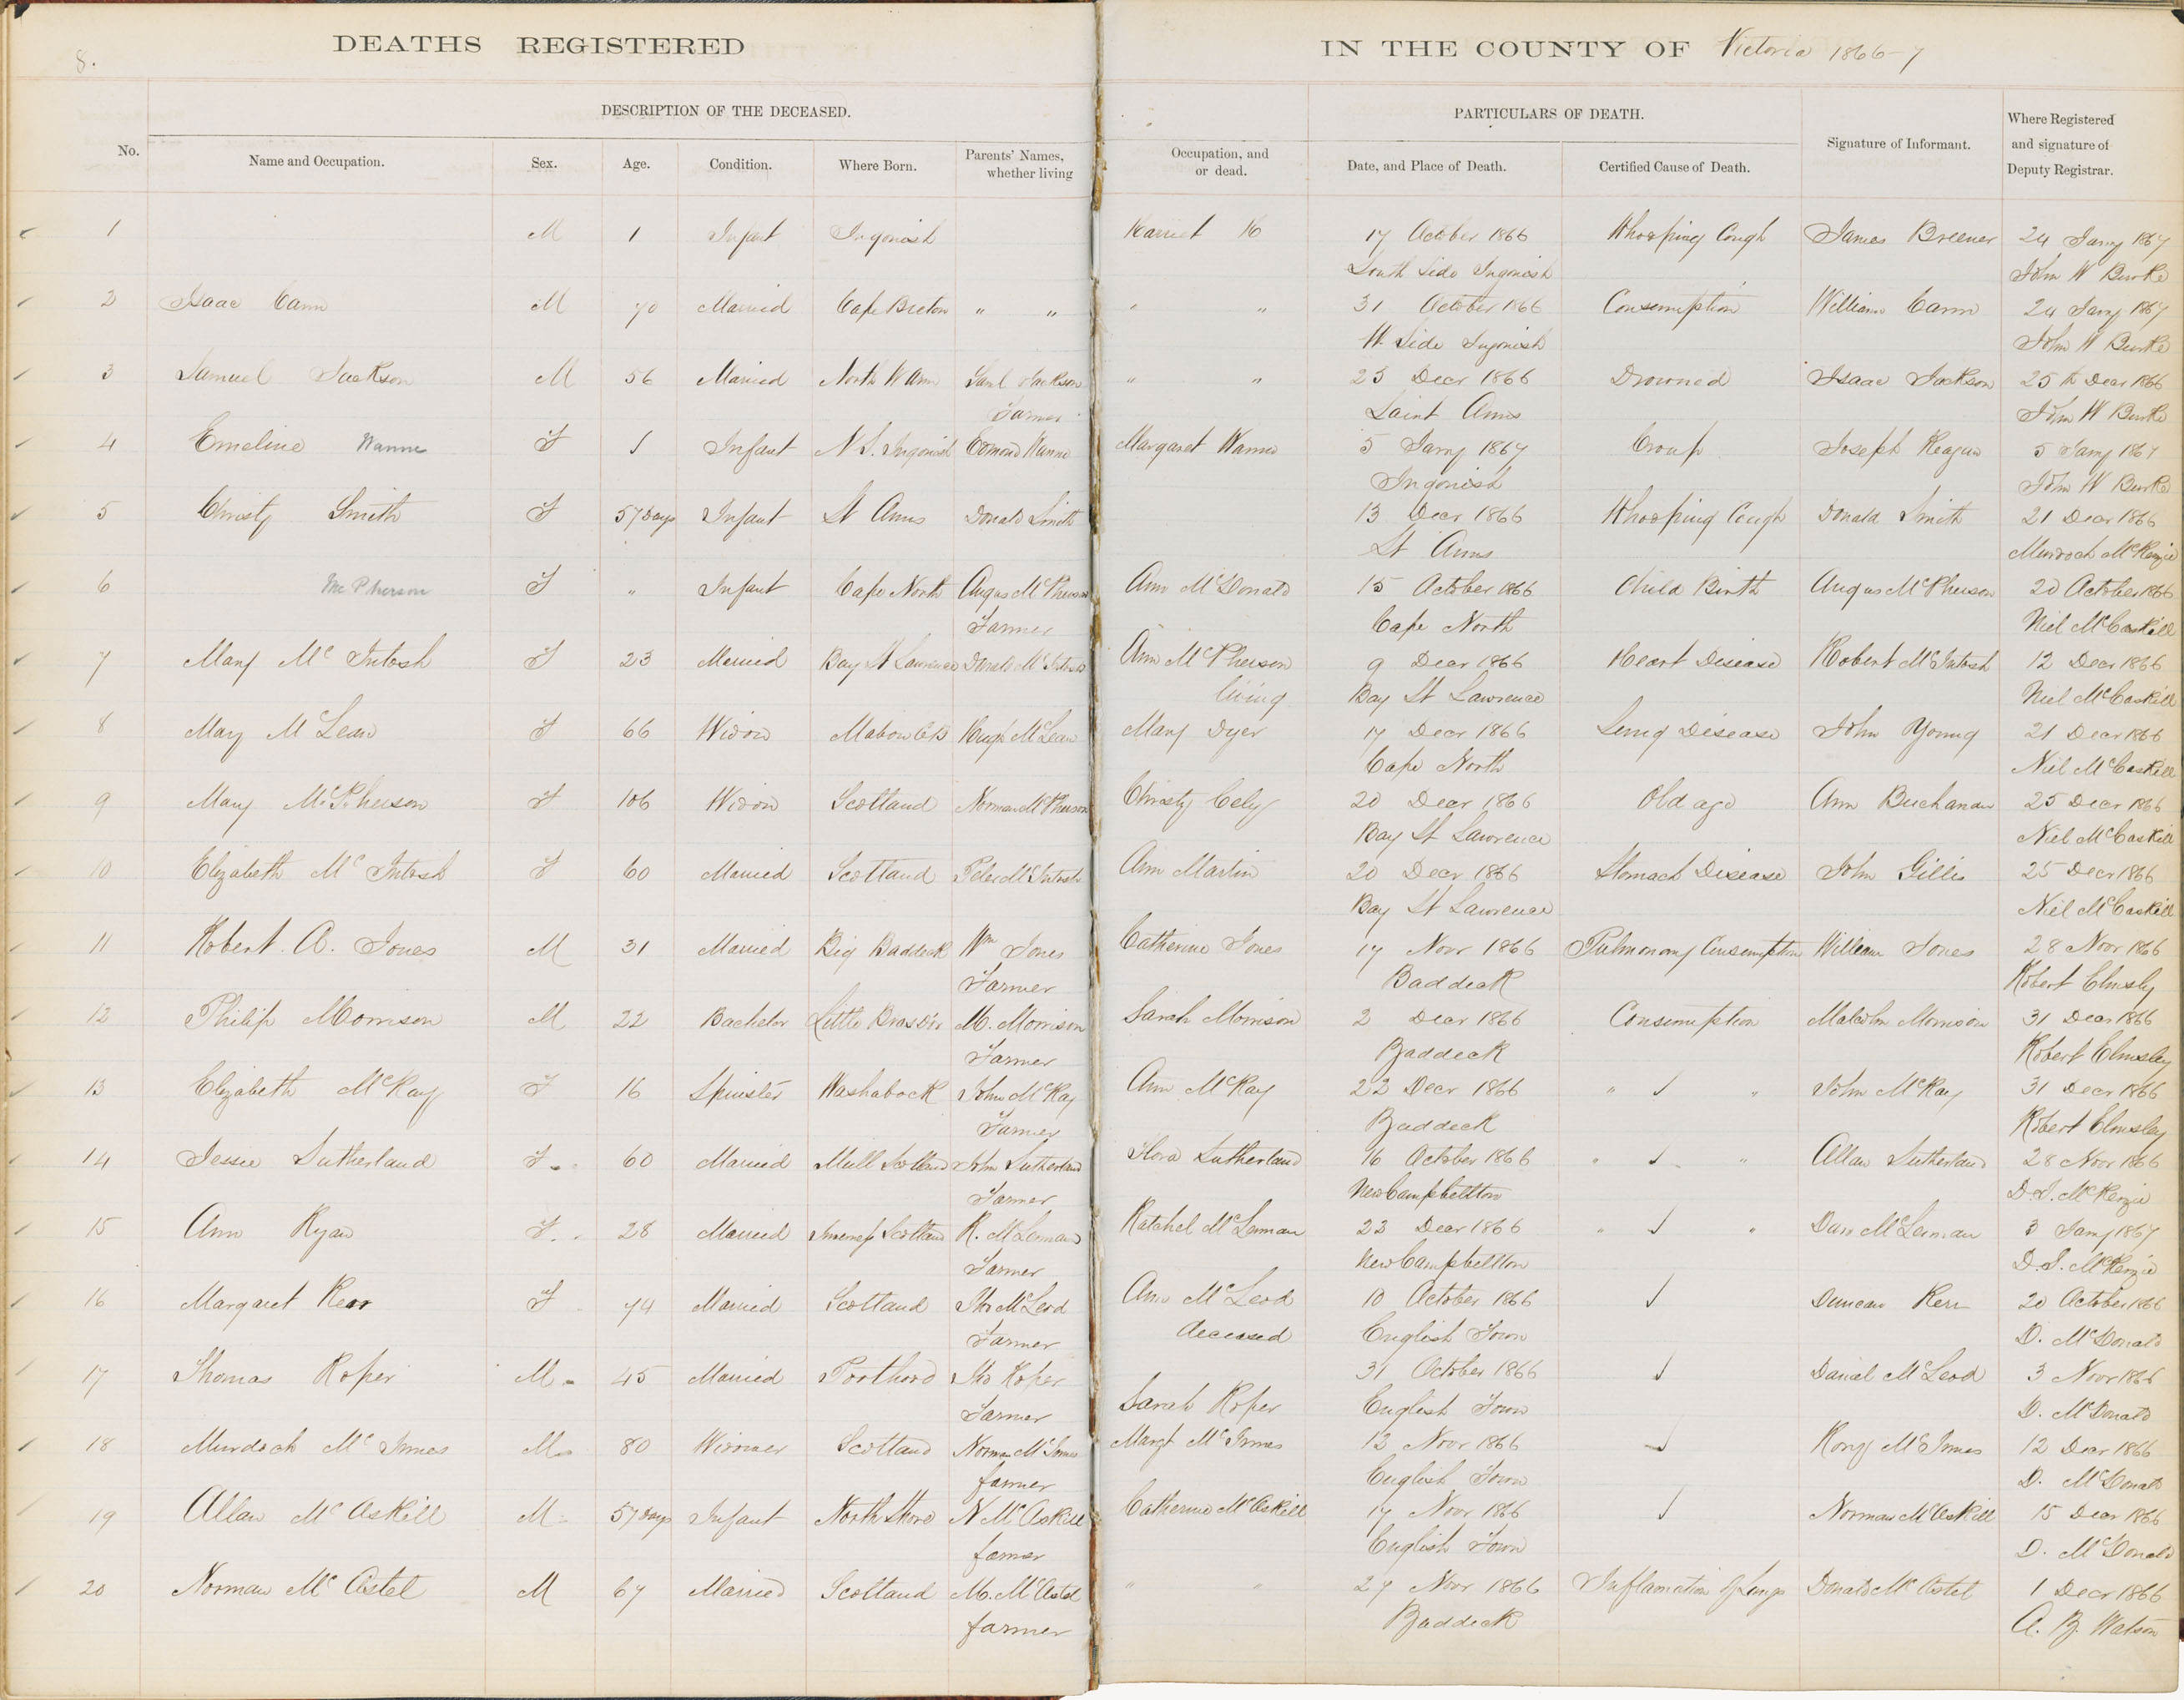 8.
DEATHS REGISTERED IN THE COUNTY OF Victoria 1866-7
DESCRIPTION OF THE DECEASED. PARTICULARS OF DEATH.
No. Name and Occupation. Sex. Age. Condition. Where Born. Parents' Names, whether living Occupation, and or dead. Date, and Place of Death. Certified Cause of Death. Signature of Informant. Where Registered and signature of Deputy Registrar.
1 M 1 Infant Ingonish Harriet 17 October 1866 Whooping Cough James Breener 24 Jany 1867
South Side Ingonish John W Burke
2 Isaac Cann M 70 Married Cape Breton " " " " 31 October 1866 Consumption William Cann 24 Jany 1867
W. Side Ingonish John W Burke
3 Samuel Jackson M 56 Married North W Arm Saml Jackson " " 23 Decr 1866 Drowned Isaac Jackson 25th Decr 1866
Farmer Saint Anns John W Burke
4 Emeline Warren F 1 Infant N S. Ingonish Edmond Margaret 5 Jany 1867 Croup Joseph Reagan 5 Jany 1867
Ingonish John W Burke
5 Christy Smith F 57 Days Infant St Anns Donald Smith 13 Decr 1866 Whooping Cough Donald Smith 21 Decr 1866
St Anns Murdoch McKenzie
6 McPherson F " Infant Cape North Angus McPherson Ann McDonald 15 October 1866 Child Birth Angus McPherson 20 October 1866
Farmer Cape North Niel McCaskill
7 Mary McIntosh F 23 Married Bay St Lawrence Donald McIntosh Ann McPherson 9 Decr 1866 Heart Disease Robert McIntosh 12 Decr 1866
living Bay St Lawrence Niel McCaskill
8 Mary McLean F 66 Widow Mabou CB Hugh McLean Mary Dyer 17 Decr 1866 Lung Disease John Young 21 Decr 1866
Cape North Niel McCaskill
9 Mary McPherson F 106 Widow Scotland Norman McPherson Christy 20 Decr 1866 Old age Ann Buchanan 25 Decr 1866
Bay St Lawrence Niel McCaskill
10 Elizabeth McIntosh F 60 Married Scotland Peter McIntosh Ann Martin 20 Decr 1866 Stomach Disease John Gillis 25 Decr 1866
Bay St Lawrence Niel McCaskill
11 Robert. A. Jones M 31 Married Big Baddeck Wm Jones Catherine Jones 17 Novr 1866 Pulmonary Consumption William Jones 28 Novr 1866
Farmer Baddeck Robert Elmsly
12 Philip Morrison M 22 Bachelor Little Bras D'or M. Morrison Sarah Morrison 2 Decr 1866 Consumption Malcolm Morrison 31 Decr 1866
Farmer Baddeck Robert Elmsley
13 Elizabeth McKay F 16 Spinster Washaback John McKay Ann McKay 22 Decr 1866 " ✓ " John McKay 31 Decr 1866
Farmer Baddeck Robert Elmsley
14 Jessie Sutherland F 60 Married Mull Scotland John Sutherland Flora Sutherland 16 October 1866 " ✓ " Allan Sutherland 28 Novr 1866
Farmer New Campbellton D. S. McKenzie
15 Ann Ryan F 28 Married Scotland R. McLennan Ratchel McLennan 23 Decr 1866 " ✓ " McLennan 3 Jany 1867
Farmer New Campbellton D. S. McKenzie
16 Margaret Kerr F 74 Married Scotland McLeod Ann McLeod 10 October 1866 ✓ Duncan Kerr 20 October 1866
Farmer deceased English Town D. McDonald
17 Thomas Roper M 45 Married Roper 31 October 1866 ✓ Daniel McLeod 3 Novr 1866
Farmer Sarah Roper English Town D. McDonald
18 Murdoch McInnes M 80 Widower Scotland Norman McInnes Margt McInnes 13 Novr 1866 ✓ McInnes 12 Decr 1866
farmer English Town D. McDonald
19 Allan McAskill M 57 Days Infant North Shore N McAskill Catherine McAskill 17 Novr 1866 ✓ Norman McAskill 15 Decr 1866
farmer English Town D. McDonald
20 Norman McAstel M 67 Married Scotland M. McAstel " " 27 Novr 1866 Inflamation of Lungs Donald McAstel 1 Decr 1866
farmer Baddeck A. B. Watson